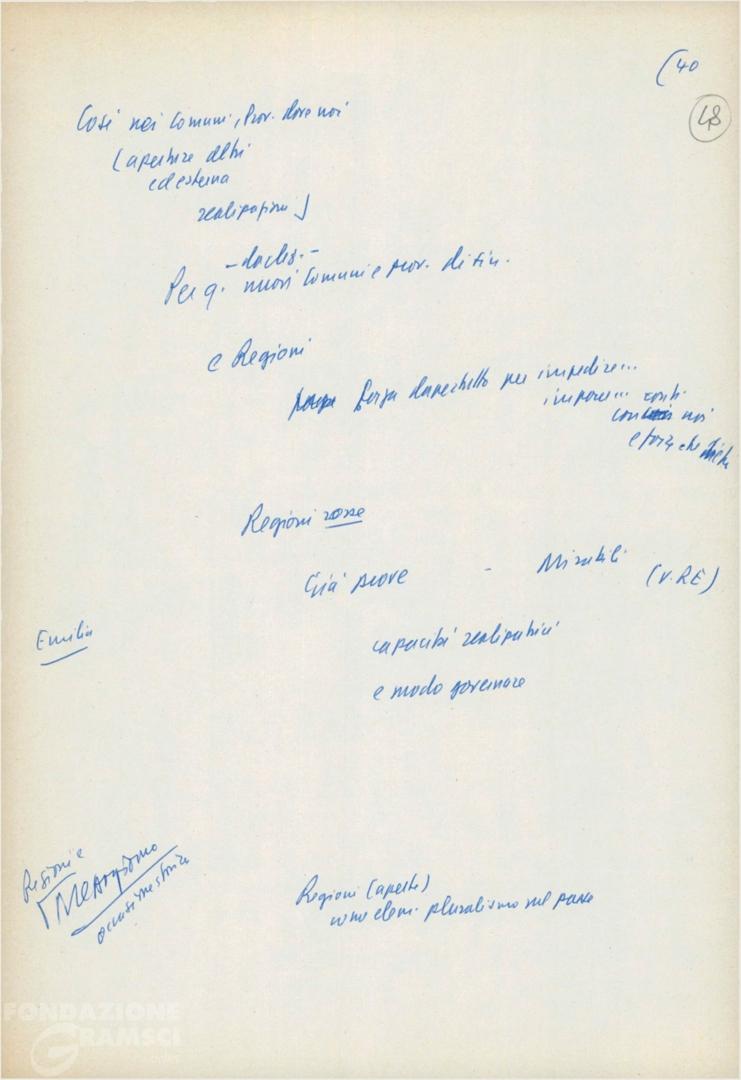 (40
48
Così nei Comuni, Prov. dove noi
(aperture altri
ed esterna
realizzazioni)
Per q. nuovi Comuni e prov. di sin.
e Regioni
forza per impedire...
imporre... conti
con noi
e forza che
Regioni rosse
Già prove - Mirabili (v. RE)
Emilia
capacità realizzatrici
e modo governare
Regioni e
Mezzogiorno
occasione storica
Regioni (aperte)
come elem. pluralismo nel paese
FONDAZIONE
GRAMSCI